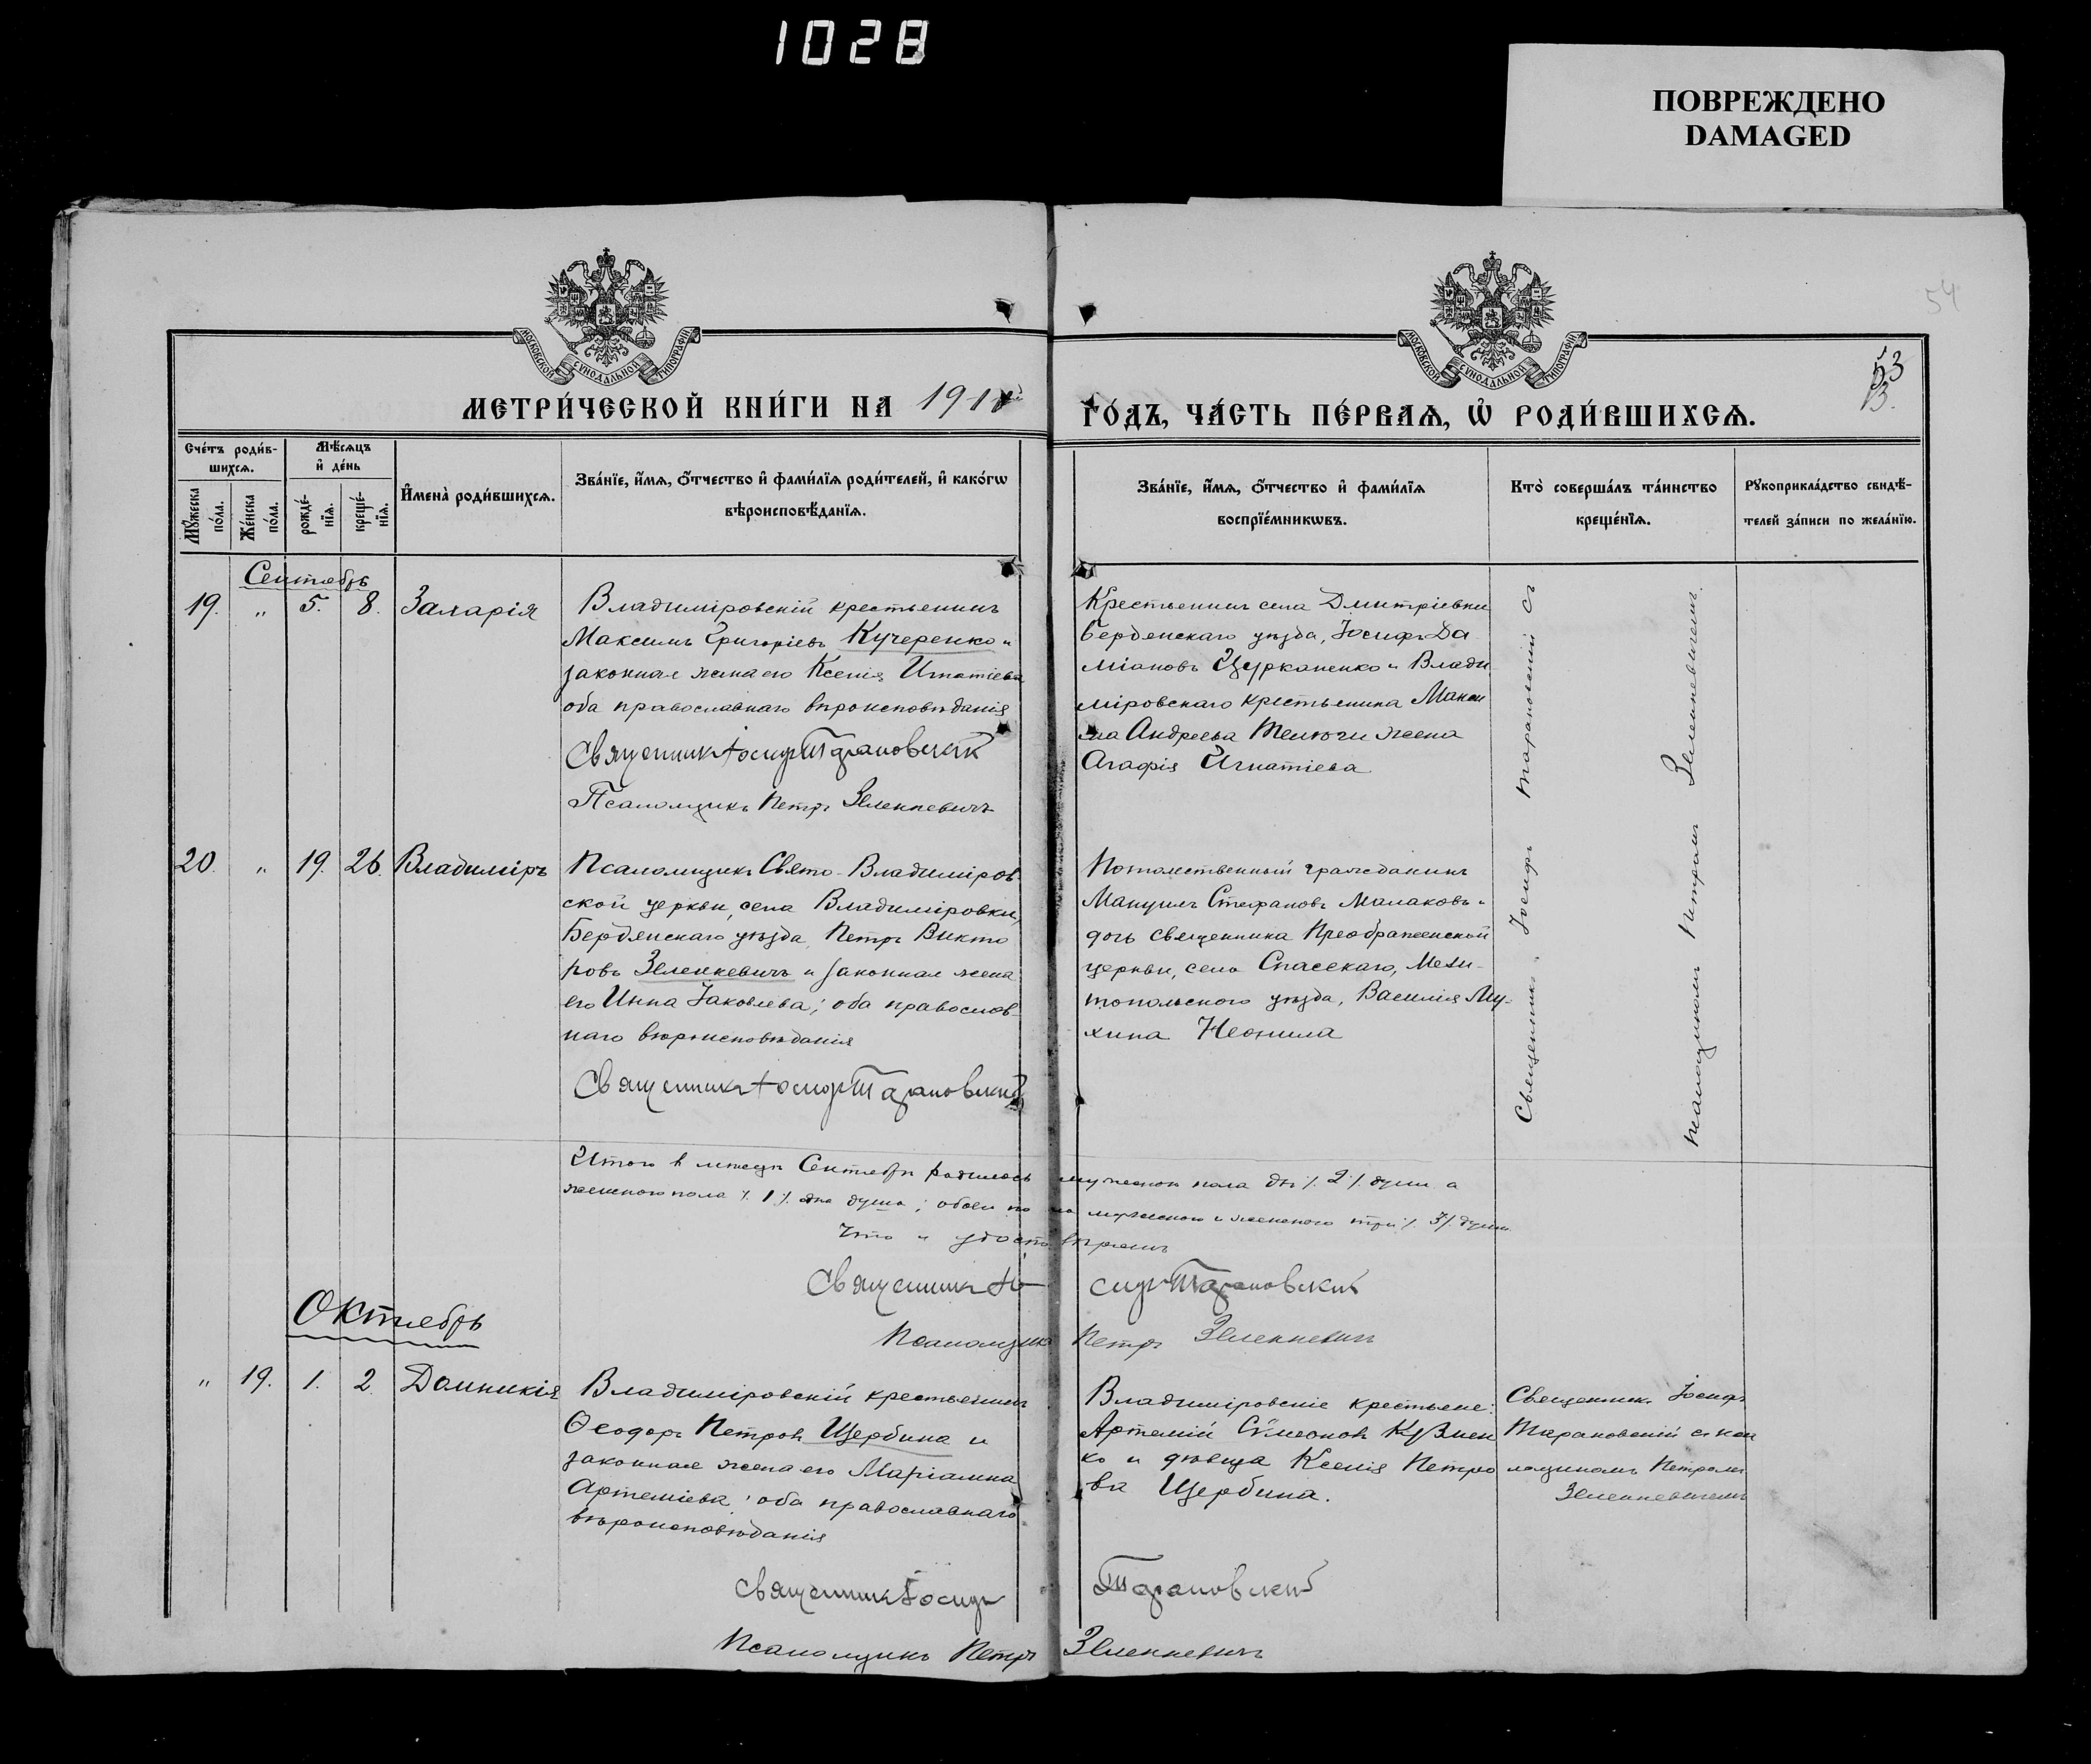 1028
ПОВРЕЖДЕНО
DAMAGED
54
МОСКОВСКОЙ СѴНОДАЛЬНОЙ ТИПОГРАФІИ
МОСКОВСКОЙ СѴНОДАЛЬНОЙ ТИПОГРАФІИ
53
МЕТРИ́ЧЕСКОЙ КНИ́ГИ НА 191
ГО́ДЪ, ЧА́СТЬ ПЕ́РВАѦ, Ѡ҆ РОДИ́ВШИХСѦ.
Сче́тъ роди́в-
шихсѧ.
Мѣ́сѧцъ
и҆ де́нь
Мꙋ́жеска
по́ла.
Же́нска
по́ла.
рожде́-
нїѧ.
креще́-
нїѧ.
И҆мена̀ роди́вшихсѧ.
Зва́нїе, и҆́мѧ, ѻ҆́тчество и҆ фами́лїѧ роди́телей, и҆ како́гѡ
вѣроисповѣ́данїѧ.
Зва́нїе, и҆́мѧ, ѻ҆́тчество и҆ фами́лїѧ
воспрїе́мникѡвъ.
Кто̀ соверша́лъ та́инство
креще́нїѧ.
Рꙋкоприкла́дство свидѣ́-
телей за́писи по жела́нїю.
Сентябрь
19. " 5. 8. Захарія
Владиміровскій крестьянинъ
Максимъ Григоріевъ Кучеренко и
законная жена его Ксенія Игнатіева
оба православнаго вѣроисповѣданія
Священникъ Іосифъ Тарановскій
Псаломщикъ Петръ Зеленкевичъ
Крестьянинъ села Дмитріевки
Бердянскаго уѣзда, Іосифъ Да
міановъ Цурканенко и Влади
міровскаго крестьянина Макси
ма Андреева Телюги жена
Агафія Игнатіева
Священникъ Іосифъ Тарановскій съ
псаломщикомъ Петромъ Зеленкевичемъ
20. " 19. 26. Владиміръ
Псаломщикъ Свято-Владиміров-
ской церкви, села Владиміровки,
Бердянскаго уѣзда, Петръ Викто
ровъ Зеленкевичъ и законная жена
его Инна Іаковлева; оба православ-
наго вѣроисповѣданія
Священникъ Іосифъ Тарановскій
Потомственный гражданинъ
Мануилъ Стефановъ Малаковъ и
дочь священника Преображенской
церкви, села Спасскаго, Мели-
топольского уѣзда, Василія Му-
хина Неонила
Итого в мѣсяцѣ Сентябрѣ родилось мужеского пола двѣ /. 2 /. души а
женского пола /. 1 /. одна душа; обоего пола мужеского и женского три /. 3 /. души.
Что и удостовѣряемъ
Священникъ Іосифъ Тарановскій
Псаломщикъ Петръ Зеленкевичъ
Октябрь
" 19. 1. 2. Домникія
Владиміровскій крестьянинъ
Ѳеодоръ Петровъ Щербина и
законная жена его Маріамна
Артеміева; оба православнаго
вѣроисповѣданія
Владиміровскіе крестьяне:
Артемій Сѵмеоновъ Кузмен
ко и дѣвица Ксенія Петро
ва Щербина.
Священникъ Іосифъ
Тарановскій съ пса
ломщикомъ Петромъ
Зеленкевичемъ
Священникъ Іосифъ Тарановскій
Псаломщикъ Петръ Зеленкевичъ